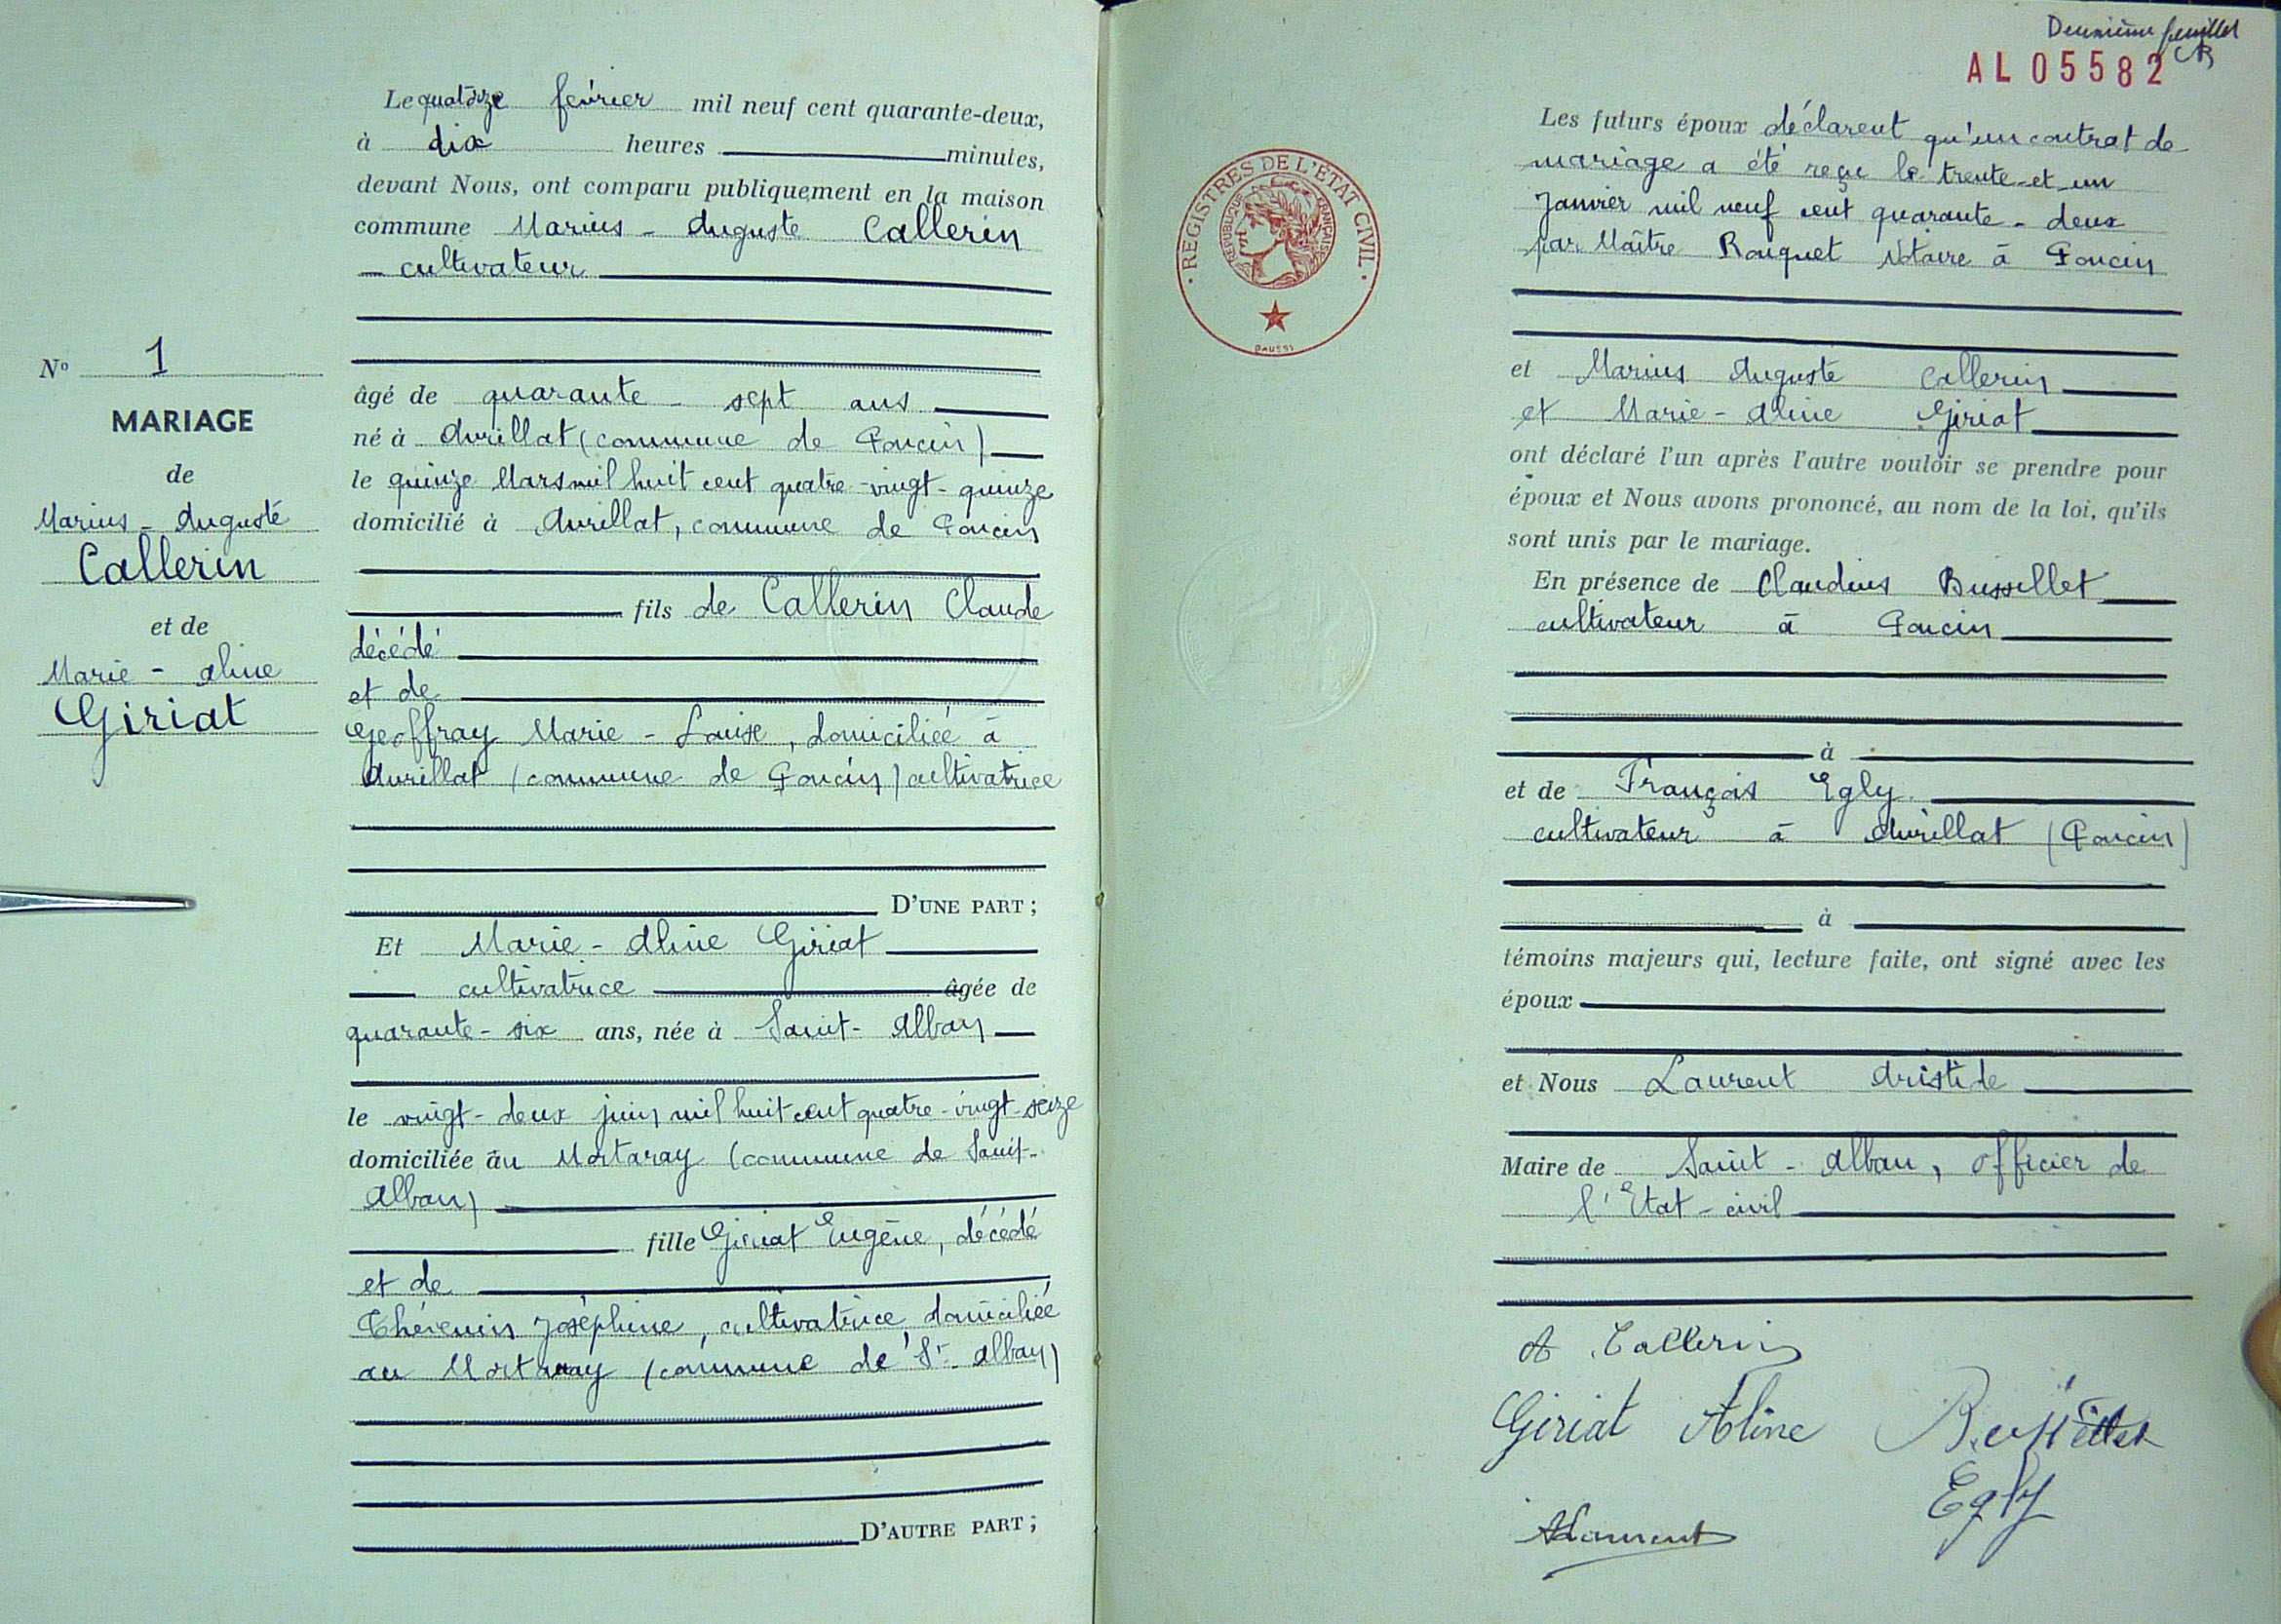 N° 1
MARIAGE
de
Marius - Auguste
Callerin
et de
Marie - Aline
Giriat
Le quatorze février mil neuf cent quarante-deux,
à dix heures minutes,
devant Nous, ont comparu publiquement en la maison
commune Marius - Auguste Callerin
cultivateur
âgé de quarante - sept ans
né à Avrillat (commune de Poncin)
le quinze Mars mil huit cent quatre-vingt-quinze
domicilié à Avrillat, commune de Poncin
fils de Callerin Claude
décédé
et de
Geoffray Marie - Louise, domiciliée à
Avrillat (commune de Poncin) cultivatrice
D'UNE PART ;
Et Marie - Aline Giriat
cultivatrice âgée de
quarante - six ans, née à Saint - Alban
le vingt - deux juin mil huit cent quatre - vingt - seize
domiciliée au Mortaray (commune de Saint-
Alban)
fille Giriat Eugène, décédé
et de
Thévenin Joséphine, cultivatrice domiciliée
au Mortaray (commune de St Alban)
D'AUTRE PART ;
Deuxième feuillet
AL 05582
REGISTRES DE L'ETAT CIVIL
REPUBLIQUE FRANÇAISE
Les futurs époux déclarent qu'un contrat de
mariage a été reçu le trente-et-un
Janvier mil neuf cent quarante - deux
par Maître Rouquet Notaire à Poncin
et Marius Auguste Callerin
et Marie - Aline Giriat
ont déclaré l'un après l'autre vouloir se prendre pour
époux et Nous avons prononcé, au nom de la loi, qu'ils
sont unis par le mariage.
En présence de Claudius Bussillet
cultivateur à Poncin
à
et de François Egly
cultivateur à Avrillat (Poncin)
à
témoins majeurs qui, lecture faite, ont signé avec les
époux
et Nous Laurent Aristide
Maire de Saint - Alban, officier de
l'Etat - civil
A Callerin
Giriat Aline
Egly
ALaurent